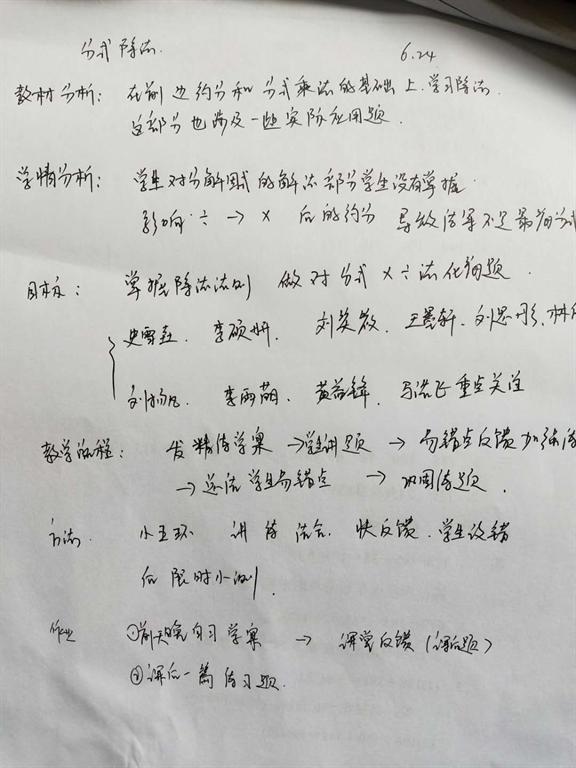 分式除法 6.24
教材分析： 在前边约分和分式乘法的基础上.学习除法.
这部分也涉及一些实际应用题.
学情分析： 学生对分解因式的解法部分学生没有掌握.
影响 ÷ → × 后的约分 导致结果不是最简分式
目标： 掌握除法法则 做对分式×÷法化简题.
李硕妍. 王景轩.
李雨萌. 重点关注
教学流程： 发精传学案 →学生讲题 → 易错点反馈加强
→ 学生易错点 → 巩固练题.
方法. 小五环 讲练结合. 快反馈.学生没错
后限时小测.
作业 ①前天晚自习学案 → 课堂反馈（课后题）
②课后一篇练习题.